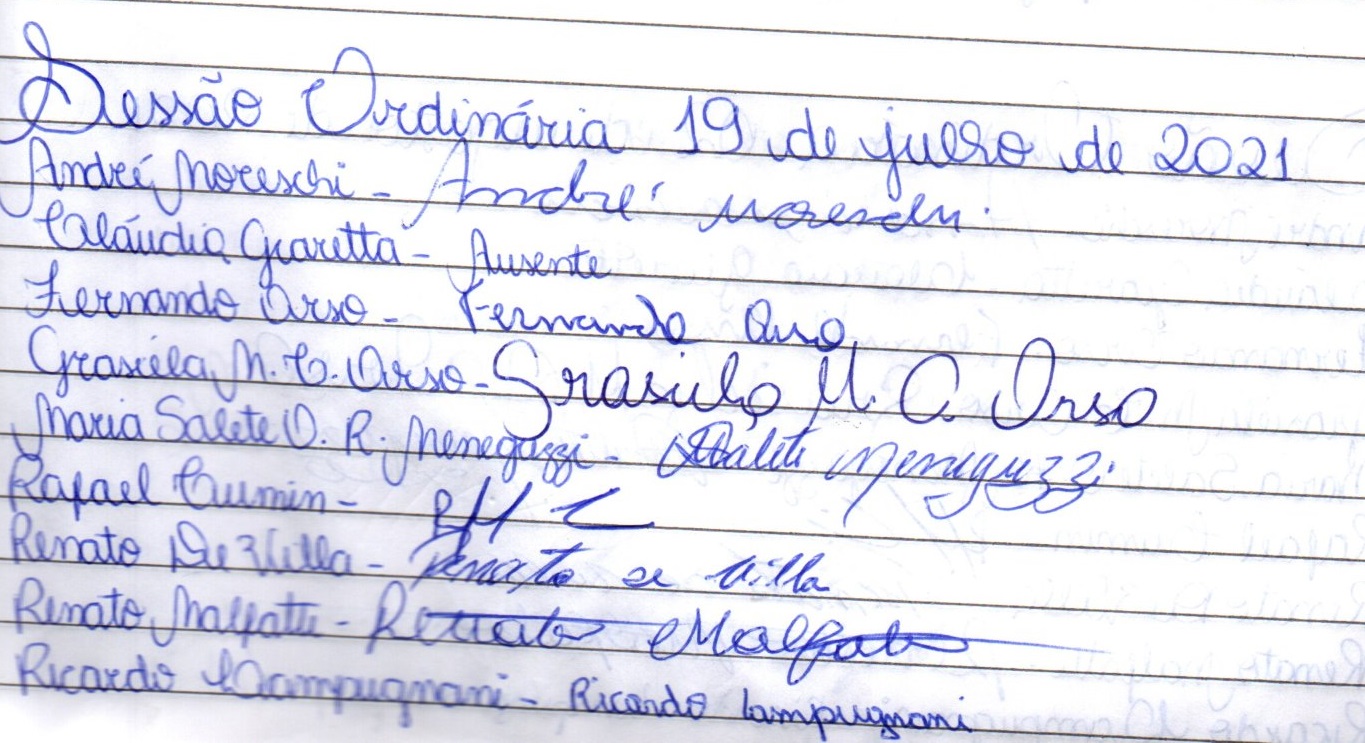 Sessão Ordinária 19 de julho de 2021
André Moreschi - André Moreschi
Cláudia Giaretta - Ausente
Fernando Orso - Fernando Orso
Grasiéla M. C. Orso - Grasiela M. C. Orso
Maria Salete O. R. Meneguzzi - Salete Meneguzzi
Rafael Cumin -
Renato De Villa - Renato De Villa
Renato Malfatti - Renato Malfatti
Ricardo Lampugnani - Ricardo Lampugnani